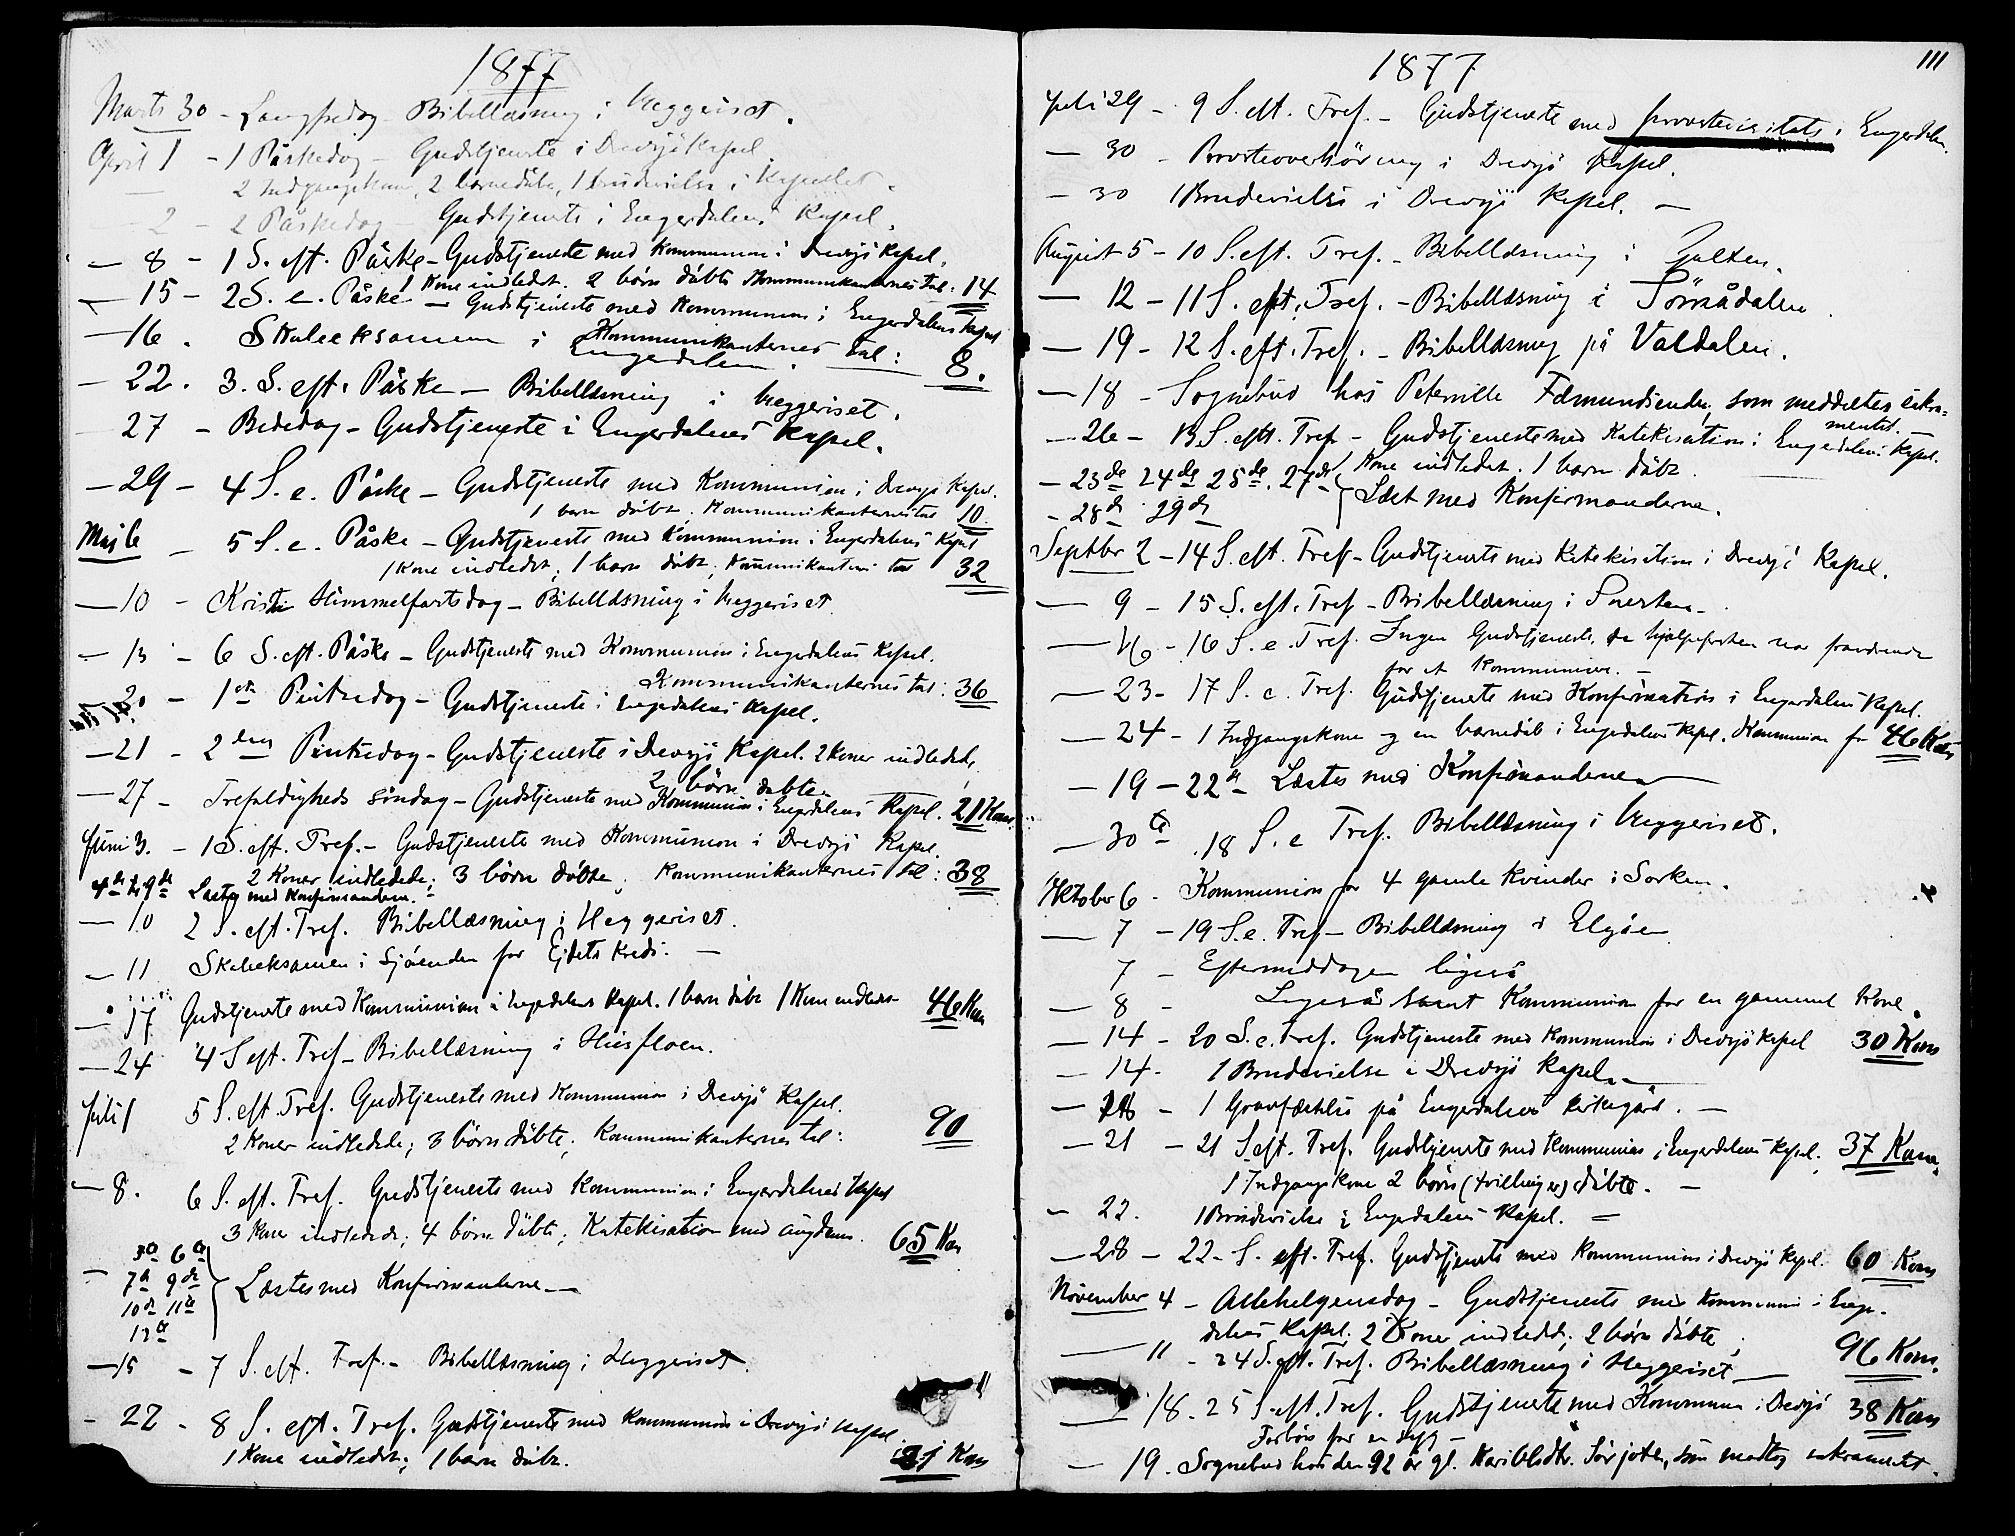 1877
Marts 30 - Langfredag - Bibellæsning i Heggeriset.
April 1 - 1 Påskedag - Gudstjeneste i Drevsjö Kapel.
2 Indgangskoner, 2 barnedåb, 1 brudevielse i Kapellet.
- 2 - 2 Påskedag - Gudstjeneste i Engerdalens Kapel.
- 8 - 1 S. eft. Påske - Gudstjeneste med Kommunion i Drevsjö Kapel.
1 Kone indledet. 2 börn döbte Kommunikanternes tal: 14
- 15 - 2 S. e. Påske - Gudstjeneste med Kommunion i Engerdalens Kapel
Kommunikanternes tal: 8.
- 16. Skoleeksamen i Engerdalen.
- 22. 3. S. eft. Påske - Bibellæsning i Heggeriset.
27 - Bededag - Gudstjeneste i Engerdalens Kapel.
- 29 - 4 S. e. Påske - Gudstjeneste med Kommunion i Drevsjö Kapel.
1 barn döbt. Kommunikanternes tal 10.
Maj 6 - 5 S. e. Påske - Gudstjeneste med Kommunion i Engerdalens Kapel
1 Kone indledet, 1 barn döbt, Kommunikanternes tal 32
- 10 - Kristi Himmelfartsdag - Bibellæsning i Heggeriset.
- 13 - 6 S. eft. Påske - Gudstjeneste med Kommunion i Engerdalens Kapel.
Kommunikanternes tal: 36
20 - 1ste Pintsedag - Gudstjeneste i Engerdalens Kapel.
- 21 - 2den Pintsedag - Gudstjeneste i Drevsjö Kapel. 2 koner indledede,
2 börn döbte
- 27 - Trefoldigheds söndag - Gudstjeneste med Kommunion i Engerdalens Kapel. 21 Kom.
Juni 3. - 1 S. eft. Tref. - Gudstjeneste med Kommunion i Drevsjö Kapel.
2 Koner indledede; 3 börn döbte. Kommunikanternes tal: 38
4de 9de Læstes med Konfirmanderne.
- 10 2 S. eft. Tref. Bibellæsning i Heggeriset.
- 11 Skoleeksamen i Sjöenden for Ejdets Kreds. -
- 17 Gudstjeneste med Kommunion i Engerdalens Kapel. 1 barn döbt 1 Kone indledet 46 Kom
- 24 4 S eft. Tref - Bibellæsning i Husfloen.
Juli 1 5 S. eft. Tref. Gudstjeneste med Kommunion i Drevsjö Kapel.
2 Koner indledede; 3 börn döbte; Kommunikanternes tal: 90
- 8. 6 S. eft. Tref. Gudstjeneste med Kommunion i Engerdalens Kapel
3 Koner indledede; 4 börn döbte; Katekisation med ungdom. 65 Kom
3de 6te
7de 9de Læstes med Konfirmanterne -
10de 11te
12te
- 15 - 7 S. eft. Tref. - Bibellæsning i Heggeriset.
- 22 - 8 S. eft. Tref. Gudstjeneste med Kommunion i Drevsjö Kapel
1 Kone indledet; 1 barn döbt. 31 Kom
1877
111
Juli 29 - 9 S. eft. Tref. - Gudstjeneste med provstevisitats i Engerdalen.
- 30 - Provsteoverhöring i Drevsjö Kapel.
- 30 1 Brudevielse i Drevsjö Kapel. -
August 5 - 10 S. eft. Tref. - Bibellæsning i Galten.
- 12 - 11 S. eft. Tref. - Bibellæsning i Sömådalen.
- 19 - 12 S. eft. Tref. - Bibellæsning på Valdalen.
- 18 - Sognebud hos Pernille Fæmundsenden, som meddeltes sakra-
mentet. -
- 26 - 13 S. eft. Tref - Gudstjeneste med Katekisation i Engerdalens Kapel.
1 Kone indledet. 1 barn döbt.
- 23de 24de 25de. 27de
- 28de 29de Læst med Konfirmanderne.
Septber 2 - 14 S. eft. Tref - Gudstjeneste med Katekisation i Drevsjö Kapel.
- 9 - 15 S. eft. Tref - Bibellæsning i Snerten -
- 16 - 16 S. e. Tref. Ingen Gudstjeneste, da hjælpepresten var fraværende
for at kommunicere. -
- 23 - 17 S. e. Tref. Gudstjeneste med Konfirmation i Engerdalens Kapel.
- 24 - 1 Indgangskone og en barnedåb i Engerdalens Kapel. Kommunion for 46 Kom
- 19 - 22de Læstes med Konfirmanderne
- 30te . 18 S. e Tref. Bibellæsning i Heggeriset.
Oktober 6 - Kommunion for 4 gamle kvinder i Sorken.
- 7 - 19 S. e. Tref - Bibellæsning i Elgåen
7 - Eftermiddagen ligeså
- 8 - Ligeså samt Kommunion for en gammel Kone.
- 14 - 20 S. e. Tref. Gudstjeneste med Kommunion i Drevsjö Kapel 30 Kom
- 14 - 1 Brudevielse i Drevsjö Kapel. -
- - 1 Gravfæstelse på Engerdalens kirkegård. -
- 21 - 21 S. eft. Tref. Gudstjeneste med Kommunion i Engerdalens Kapel. 37 Kom.
1 Indgangskone 2 börn (tvillinger) döbte. -
- 22. 1 Brudevielse i Engerdalens Kapel. -
- 28 - 22 - S. eft. Tref. Gudstjeneste med Kommunion i Drevsjö Kapel. 60 Kom
November 4 - Allehelgensdag - Gudstjeneste med Kommunion i Enger-
dalens Kapel; 2 Koner indledede; 2 börn döbte; 96 Kom.
- 11 - 24 S. eft. Tref. Bibellæsning i Heggeriset -
- 18. 25 S. eft. Tref. Gudstjeneste med Kommunion i Drevsjö 38 Kom
Forbön for en syg -
- 19. Sognebud hos den 92 år gl. Kari, som modtog sakramentet.